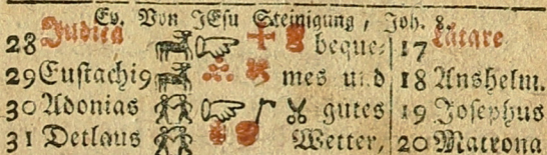 Ev. Von JEsu Steinigung, Joh. 8.
28 Judica beque= 17 Lätare
29 Eustachi9 mes und 18 Anshelm.
30 Adonias gutes 19 Josephus
31 Detlaus Wetter, 20 Matrona